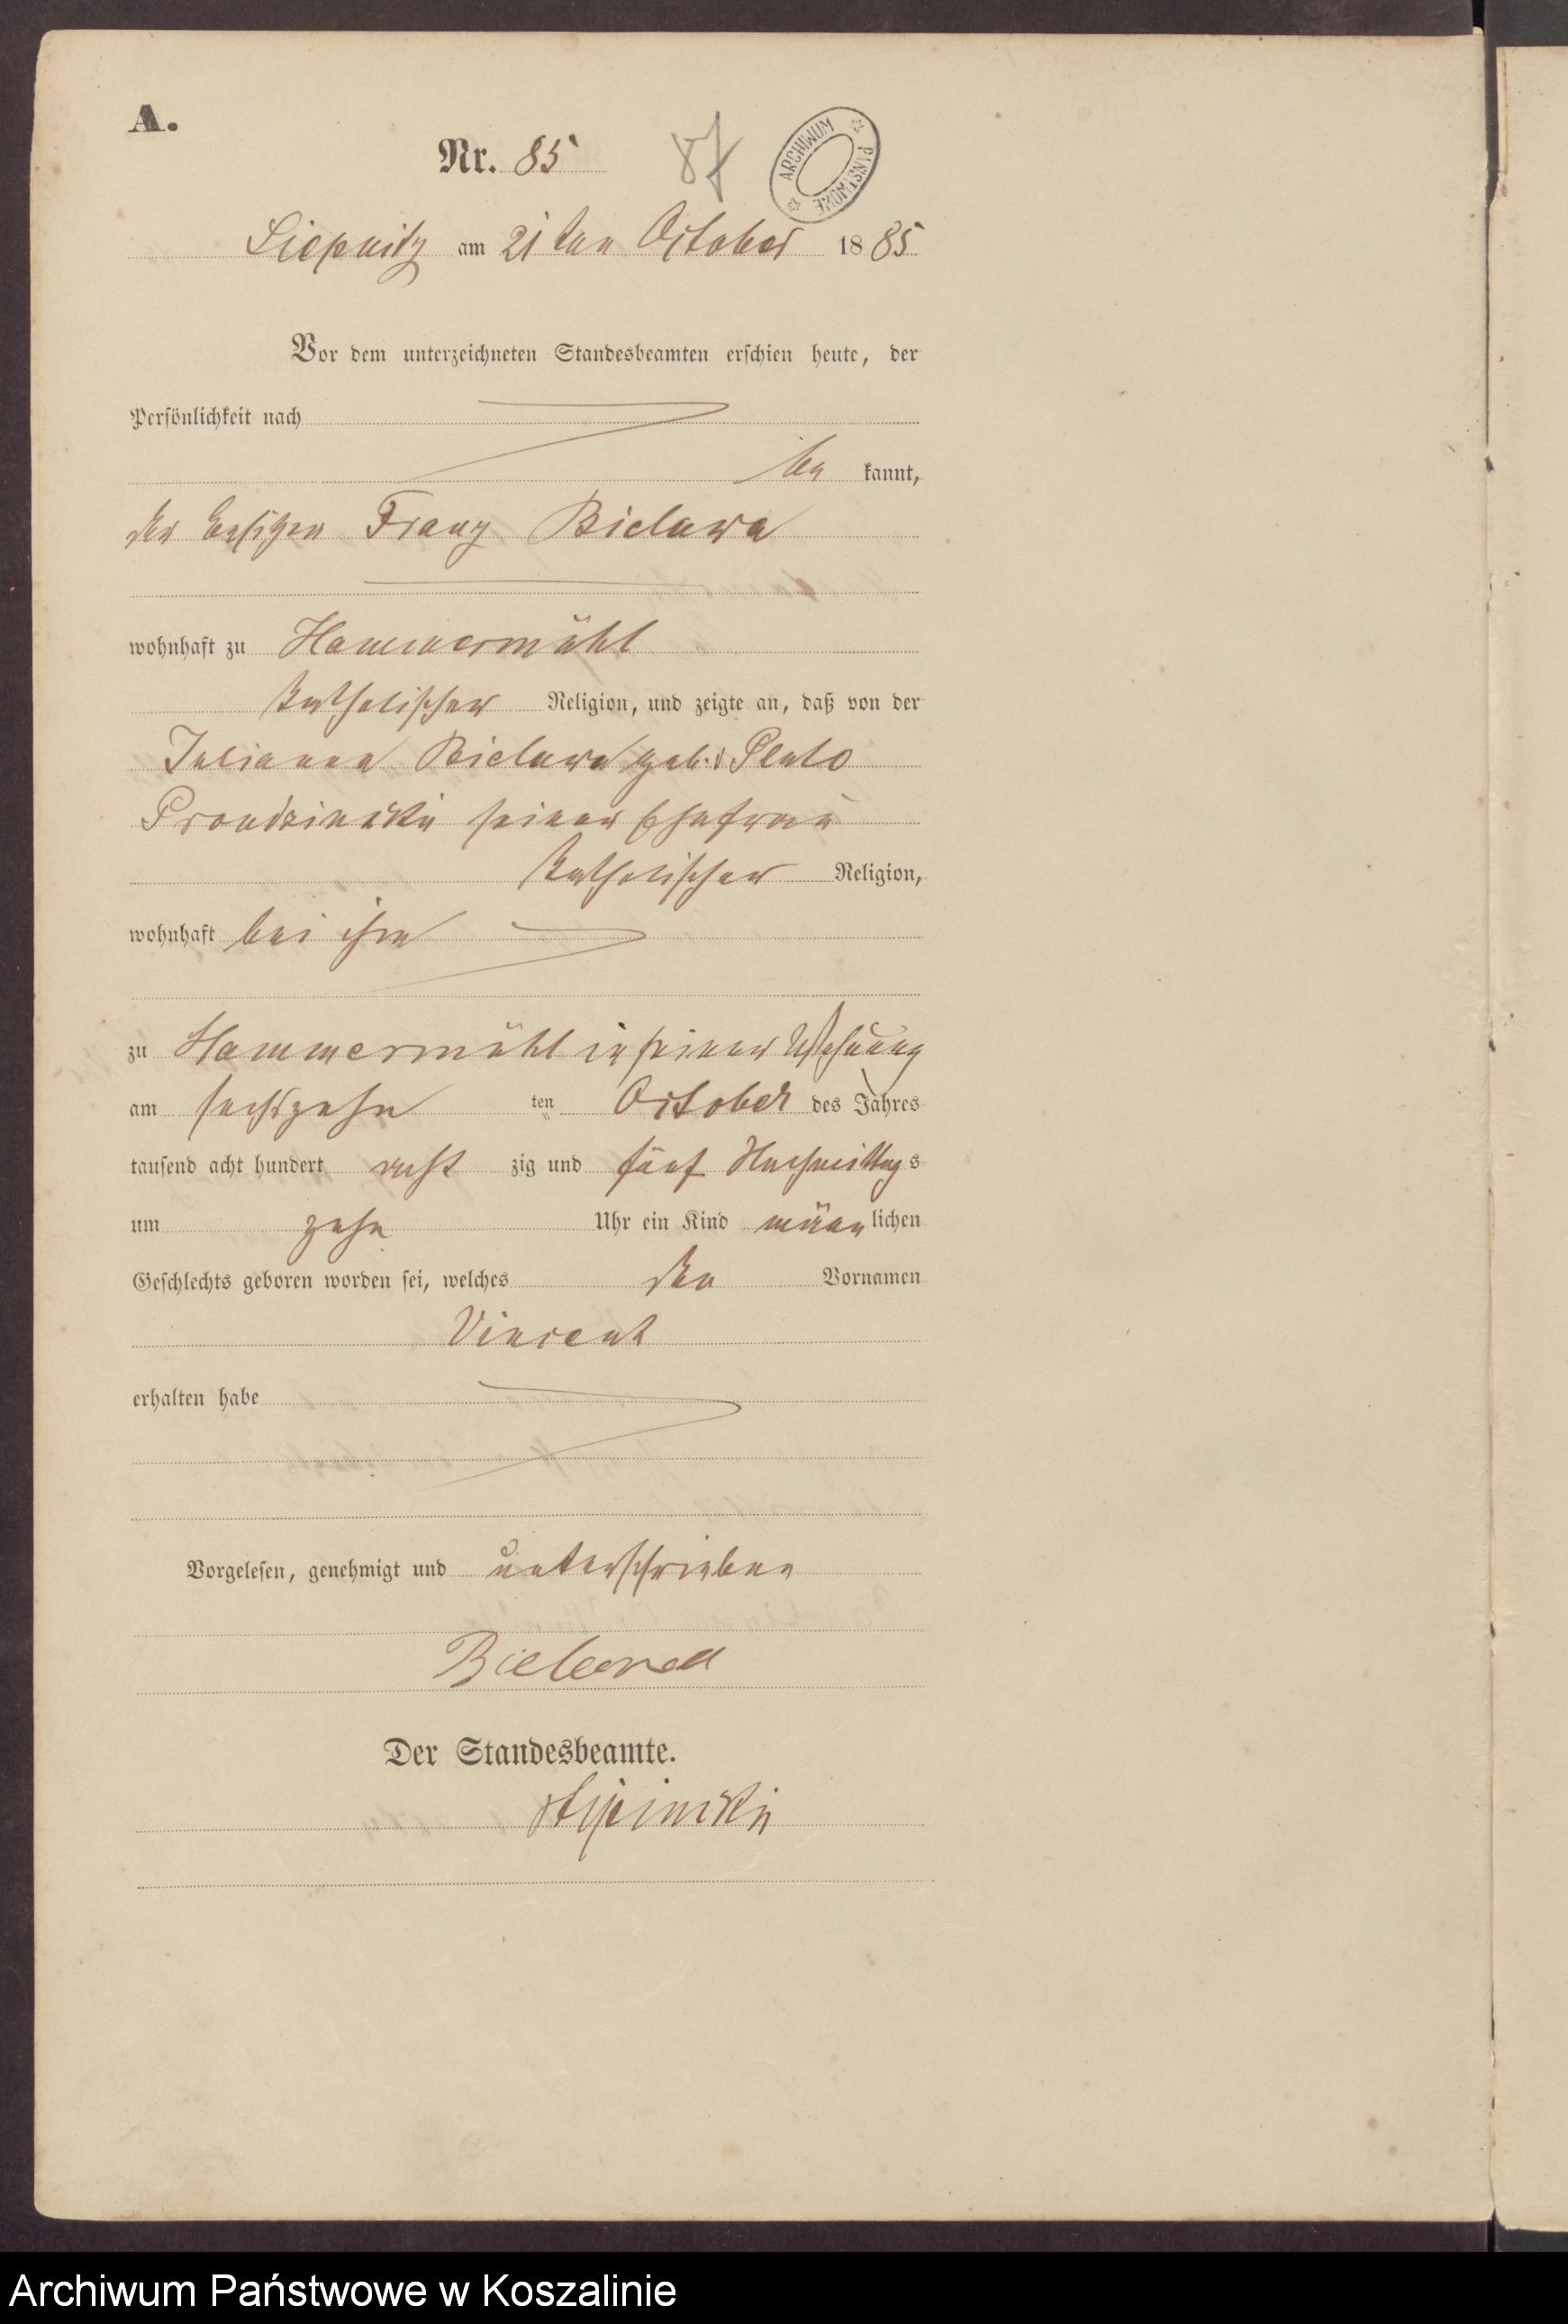 A.
Nr. 85
87
ARCHIWUM PAŃSTWOWE
Liepnitz am 21ten October 1885
Vor dem unterzeichneten Standesbeamten erschien heute, der
Persönlichkeit nach
be kannt,
der Besitzer Franz Bielawa
wohnhaft zu Hammermühl
katholischer Religion, und zeigte an, daß von der
Julianna Bielawa geb. Pluto
Prondzinski seiner Ehefrau
katholischer Religion,
wohnhaft bei ihm
zu Hammermühl in seiner Wohnung
am sechszehn ten October des Jahres
tausend acht hundert acht zig und fünf Nachmittags
um zehn Uhr ein Kind männlichen
Geschlechts geboren worden sei, welches den Vornamen
Vincent
erhalten habe
Vorgelesen, genehmigt und unterschrieben
Bielawa
Der Standesbeamte.
Archiwum Państwowe w Koszalinie